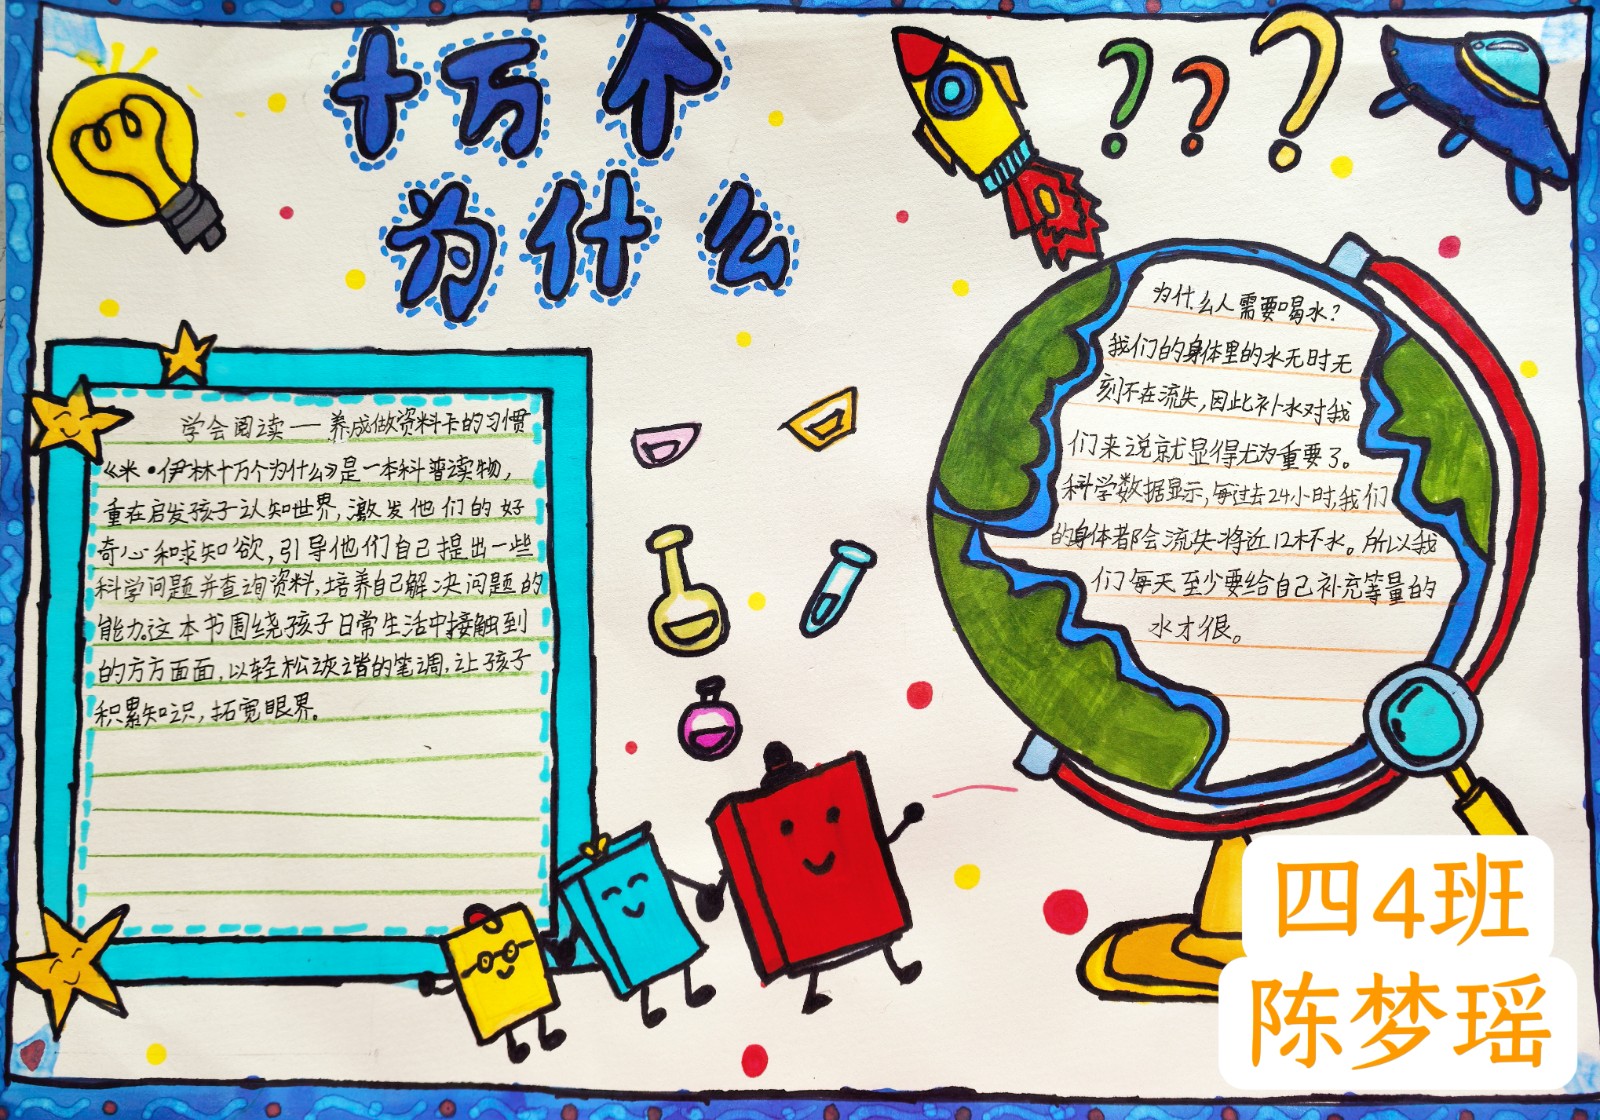 十万个
为什么
???
学会阅读——养成做资料卡的习惯
《米·伊林十万个为什么》是一本科普读物,
重在启发孩子认知世界,激发他们的好
奇心和求知欲,引导他们自己提出一些
科学问题并查询资料,培养自己解决问题的
能力。这本书围绕孩子日常生活中接触到
的方方面面,以轻松诙谐的笔调,让孩子
积累知识,拓宽眼界。
为什么人需要喝水?
我们的身体里的水无时无
刻不在流失,因此补水对我
们来说就显得尤为重要了。
科学数据显示,每过去24小时,我们
的身体都会流失将近12杯水。所以我
们每天至少要给自己补充等量的
水才很。
四4班
陈梦瑶